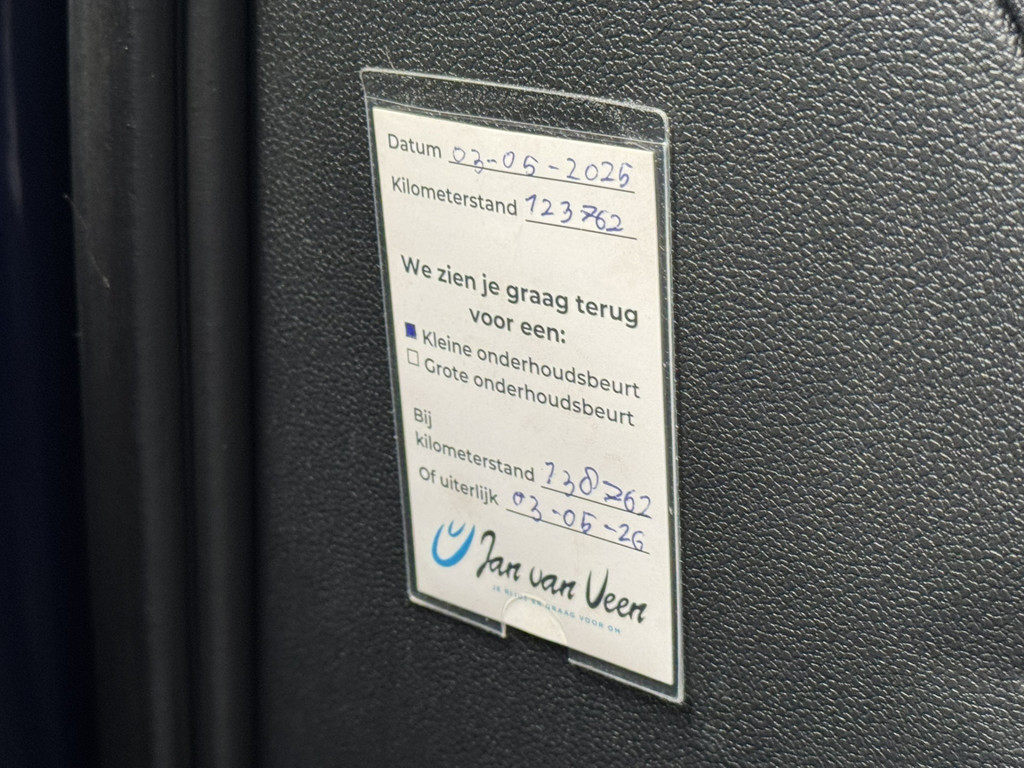 Datum 03-05-2025
Kilometerstand 123762
We zien je graag terug
voor een:
Kleine onderhoudsbeurt
Grote onderhoudsbeurt
Bij
kilometerstand 138762
Of uiterlijk 03-05-26
Jan van Veen
JE BLIJFT ER GRAAG VOOR OM